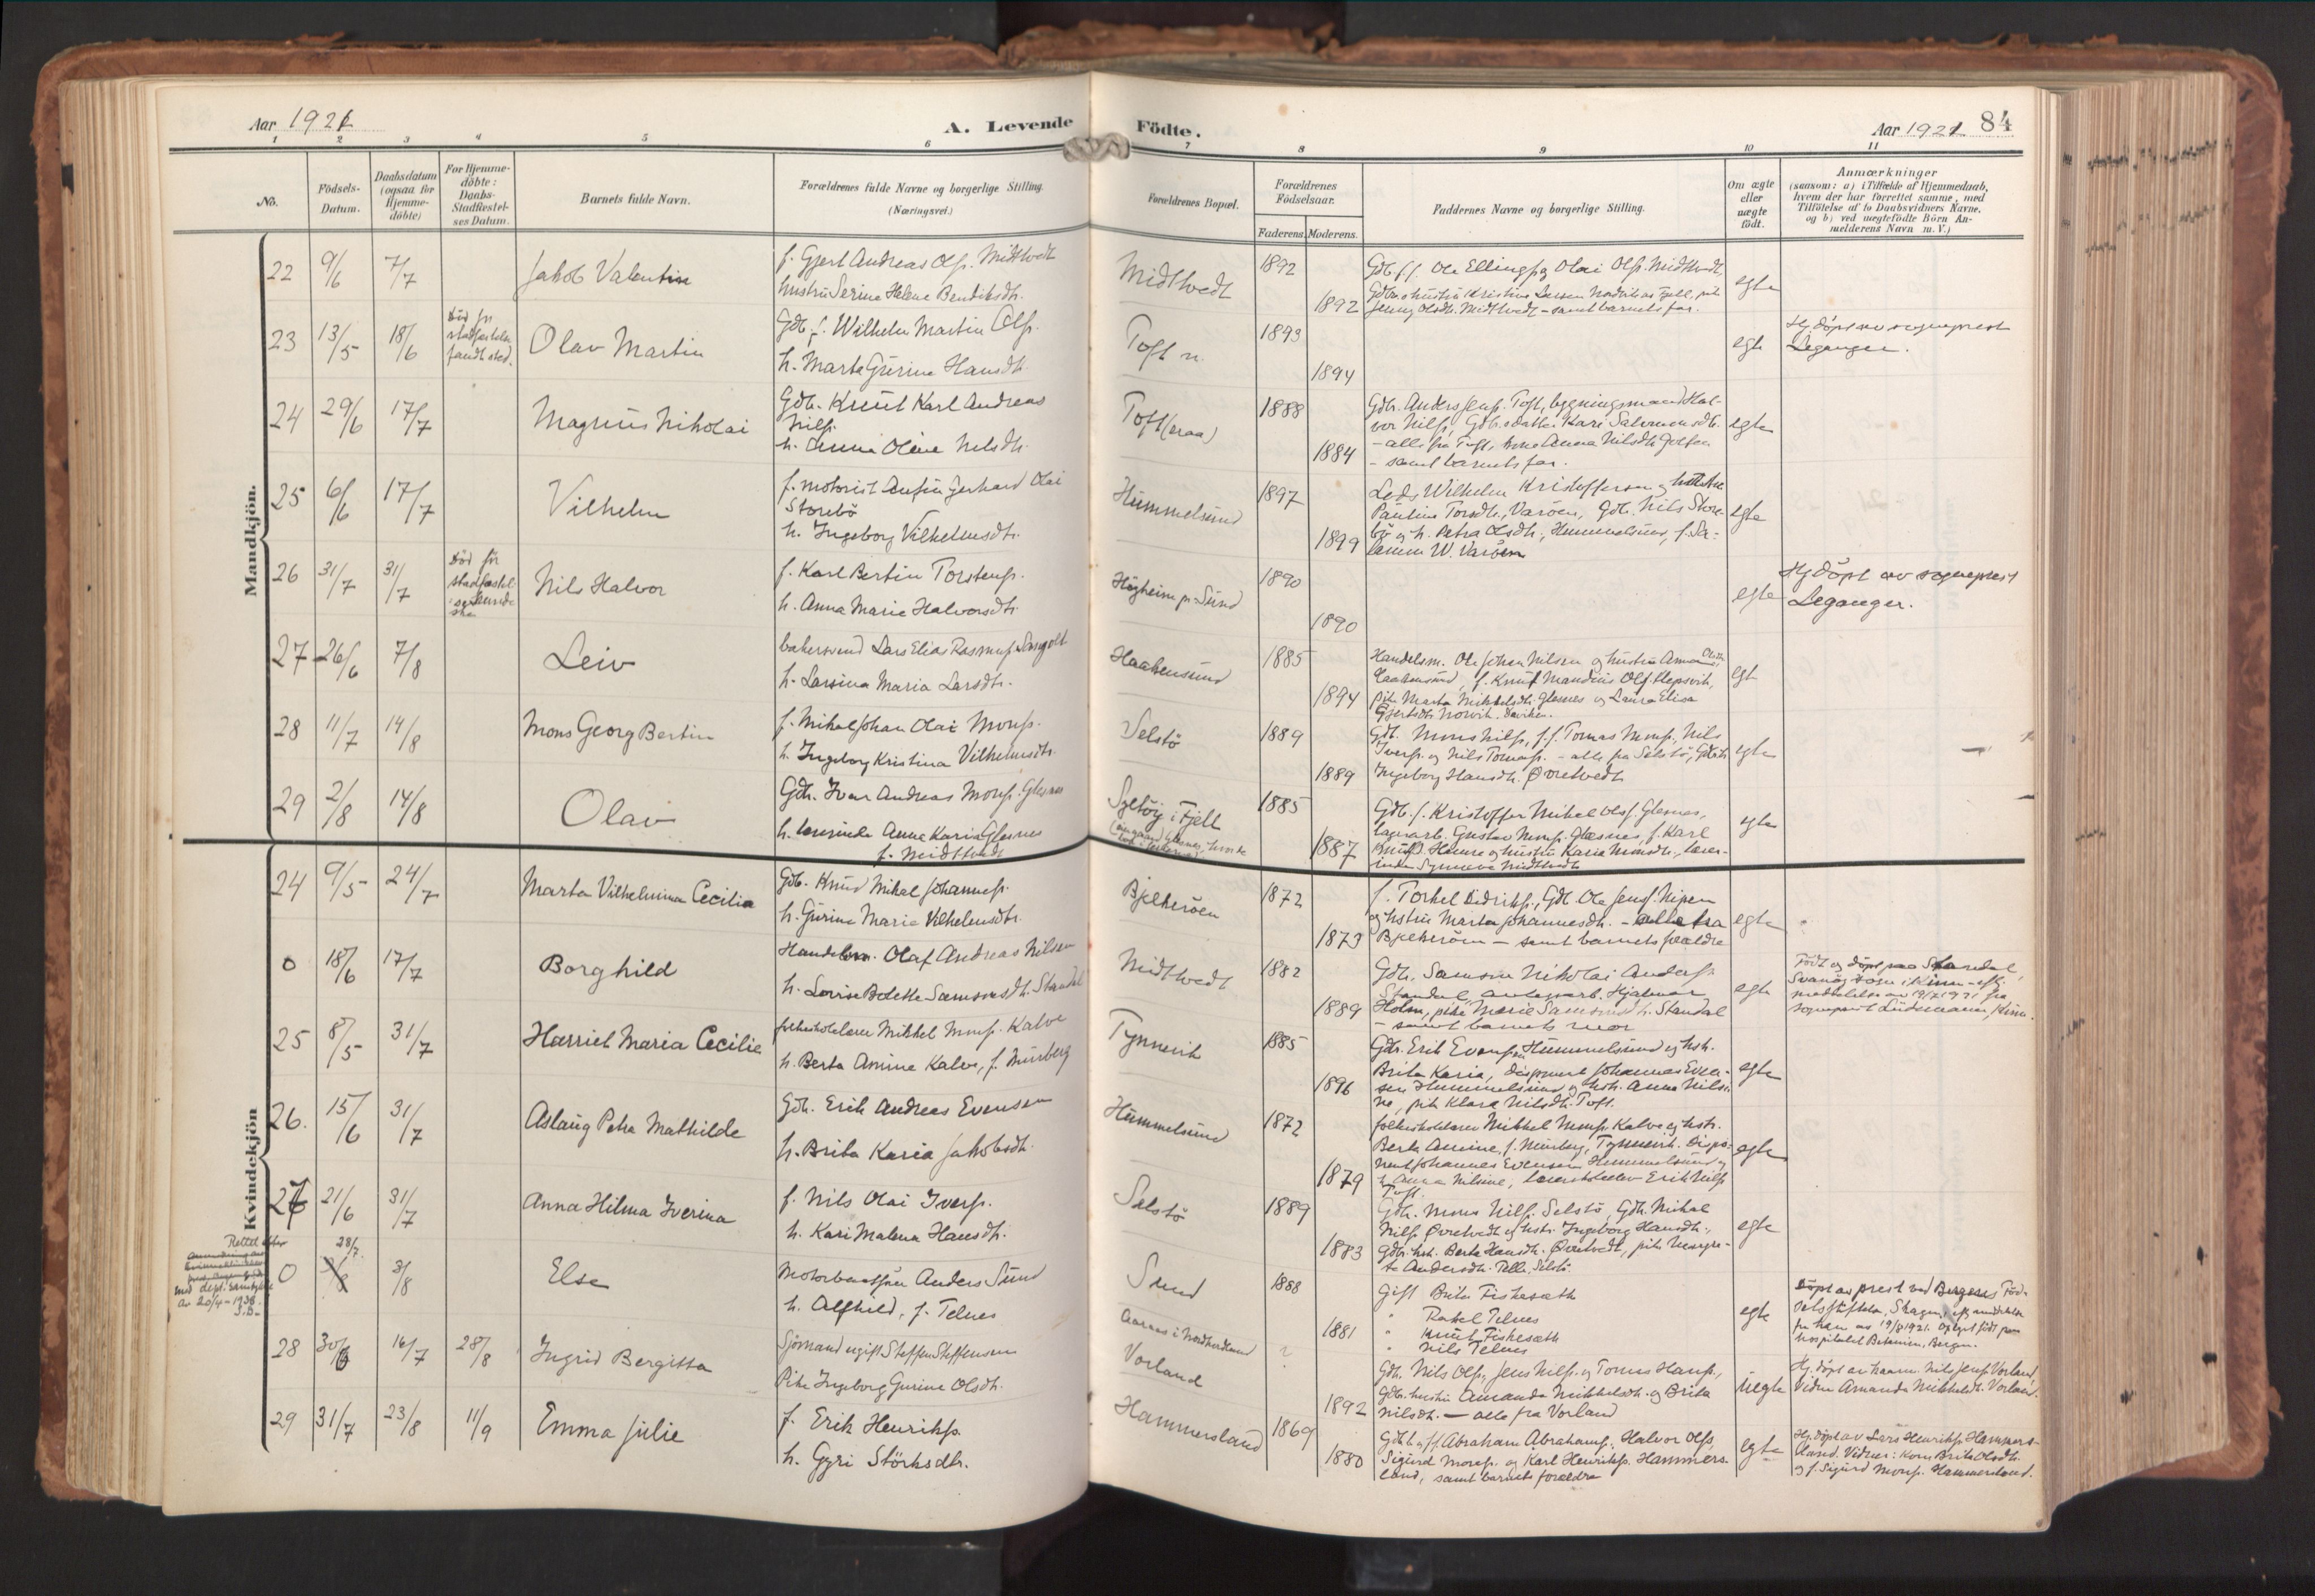 Aar 1921
A. Levende
Födte.
Aar 1921 84
1 2 3 4 5 6 7 8 9 10 11
No.
Födsels-
Datum.
Daabsdatum
(ogsaa for
Hjemme-
döbte)
For Hjemme-
döbte:
Daabs-
Stadfæstel-
ses Datum.
Barnets fulde Navn.
Forældrenes fulde Navne og borgerlige Stilling.
(Næringsvei.)
Forældrenes Bopæl.
Forældrenes
Födselsaar.
Faderens. Moderens.
Faddernes Navne og borgerlige Stilling.
Om ægte
eller
uægte
födt.
Anmærkninger
(saasom: a) i Tilfælde af Hjemmedaab,
hvem der har forrettet samme, med
Tilföielse af to Daabsvidners Navne,
og b) ved uægtefödte Börn An-
melderens Navn m. V.)
Mandkjön.
22 9/6 7/7 Jakob Valentin
f. Gjert Andreas Ols. Midttvedt
hustru Serine Helene Bendiksdtr.
Midttvedt 1892
1892
Gdb. f.f. Ole Ellings. og Olai Ols. Midttvedt,
Jenny Olsdtr. Midttvedt - samt barnets far.
egte
23 13/5 18/6
Död før
stadfæstelsen
fandt sted.
Olav Martin
Gdb. f. Wilhelm Martin Ols.
h. Marta Gurine Hansdtr.
Toft n. 1893
1894
egte
Hj. döpt av sogneprest
Leganger.
24 29/6 17/7 Magnus Nikolai
Gdb. Knut Karl Andreas
Nils.
h. Anna Oline Nilsdtr.
Toft (øraa) 1888
1884
Gdb. Anders Jens. Toft, bygningsmand Hal-
vor Nils, Gdb.s datter Kari Salomonsdtr.
- alle fra Toft, Anna Nilsdtr.
- samt barnets far.
egte
25 6/6 17/7 Vilhelm
f. motorist Anfin Gerhard Olai
Storebö
h. Ingeborg Vilhelmsdtr.
Hummelsund 1897
1899
Wilhelm Kristoffersen og hustru
Pauline Torsdtr., Varöen, Gdb. Nils Store-
bö og h. Petra Olsdtr., Hummelsund, f. Sa-
lamon W. Varöen
egte
26 31/7 31/7
Död før
Nils Halvor
f. Karl Bertin Torstens.
h. Anna Marie Halvorsdtr.
Högheim pr. Sund 1890
1890
egte
Hj. döpt av sogneprest
Leganger.
27 26/6 7/8 Leiv
bakersvend Lars Elias Rasmus. Sangolt
h. Larsina Maria Larsdtr.
Haakensund 1885
1894
Handelsm. Ole Johan Nilsen og hustru
Haakensund, f. Knut Mandius Ols. Klepsvik,
pike Marta Mikkelsdtr. Glesnes og Laura Elisa
Gjertsdtr.
egt
28 11/7 14/8 Mons Georg Bertin
f. Mikal Johan Olai Mons.
h. Ingeborg Kristina Vilhelmsdtr.
Selstö 1889
1889
Gdb. Mons Nils, f.f. Tomas Mons., Nils
Ivers. og Nils Tomas. - alle fra Selstö,
Ingeborg Hansdtr. Øvretvedt
egte
29 2/8 14/8 Olav
Gdb. Ivar Andreas Mons. Glesnes
h. lærerinde Anna Karia Glesnes
f. Midttvedt
i Fjell 1885
1887
Gdb. f. Kristoffer Mikal Ols. Glesnes,
lagerarb. Gustav Mons. Glesnes, f. Karl
og hustru Karia Monsdtr., lærer-
inde Synneva Midttvedt
egte
Kvindekjön
24 9/5 24/7 Marta Vilhelmina Cecilia
Gdb. Knud Mikal Johannes.
h. Gurine Marie Vilhelmsdtr.
Bjelkeröen 1872
1873
f. Torkel Didriks., Gdb. Ole Jens. Nipen
og hustru Marta Johannesdtr. - alle fra
Bjelkeröen - samt barnets forældre
egte
0 18/6 17/7 Borghild
Handelsm. Olaf Andreas Nilsen
h. Lovise Bolette Samsonsdtr. Standal
Midttvedt 1882
1889
Gdb. Samson Nikolai Anders.
Standal, Hjalmar
Holm, pike Marie Samsonsdtr. Standal
- samt barnets mor
egte
Født og døpt paa Standal,
Svanøy sogn i Kinn - efter
meddelelse av 19/7 1921 fra
sogneprest Lindemann, Kinn.
25 8/5 31/7 Harriet Maria Cecilie
folkeskolelærer Mikkel Mons. Kalve
h. Berta Amine Kalve, f. Mürberg
Tynnevik 1885
1896
Gdb. Erik Evens. Hummelsund og hstr.
Brita Karia, disponent Johannes Even-
sen Hummelsund og hstr. Anna Nilsi-
ne, pike Klara Nilsdtr. Toft.
egte
26. 15/6 31/7 Aslaug Petra Mathilde
Gdb. Erik Andreas Evensen
h. Brita Karia Jakobsdtr.
Hummelsund 1872
1879
folkeskolelærer Mikkel Mons. Kalve og hstr.
Berta Amine, f. Mürberg, Tynnevik. Dispo-
nent Johannes Evensen Hummelsund og
h. Anna Nilsine, lærerskoleelev Erik Nils.
Toft.
egte
27 21/6 31/7 Anna Hilma Iverina
f. Nils Olai Ivers.
h. Kari Malena Hansdtr.
Selstö 1889
1883
Gdb. Mons Nils. Selstö, Gdb. Mikal
Nils. Øvretvedt og hstr. Ingeborg Hansdtr.,
Gdbr. hst. Berta Hansdtr. Øvretvedt, pike Margre-
te Andersdtr. Telle, Selstö.
egte
Rettet efter
med dept. samtykke
av 20/4-1938.
S.D.
28/7
0 3/8 Else
Anders Sund
h. Alfhild, f. Telnes
Sund 1888
1881
Gift Brita Fiskesæth
" Rakel Telnes
" Knut Fiskesæth
" Nils Telnes
egte
Döpt av prest ved Bergens Föd-
selsstiftelse,
fra ham av 19/8 1921. født paa
hospitalet Betanien, Bergen.
28 30/6 16/7 28/8 Ingrid Bergitta
Sjømand ugift Steffen Steffensen
Pike Ingeborg Gurine Olsdtr.
i Nordhordland
Vorland ?
1892
Gdb. Nils Ols, Jens Nils. og Tomas Hans.,
Gdb. hustru Amanda Mikkelsdtr. og Brita
Nilsdtr. - alle fra Vorland
uegte
Hj. döpt av Nils Jens. Vorland,
Vidne Amanda Mikkelsdtr. Vorland.
29 31/7 23/8 11/9 Emma Julie
f. Erik Henriks.
h. Gyri Störksdtr.
Hammersland 1869
1880
Gdb. f.f. Abraham Abrahams., Halvor Ols,
Sigurd Mons. og Karl Henriks. Hammers-
land, samt barnets forældre
egte
Hj. döpt av Lars Henriks. Hammers-
land. Vidner: Kone Brita Olsdtr.
og f. Sigurd Mons. Hammersland.